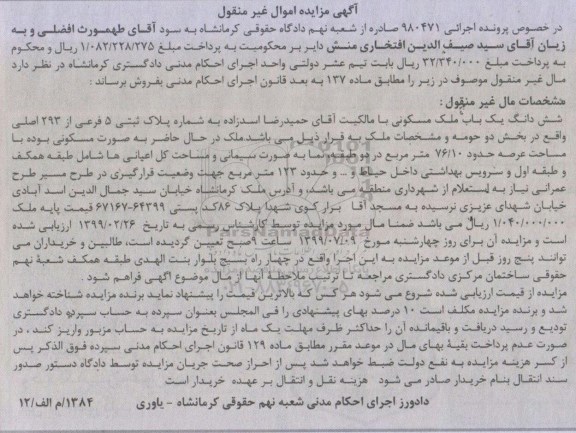 آگهی مزایده اموال غیر منقول
در خصوص پرونده اجرائی ۹۸۰۴۷۱ صادره از شعبه نهم دادگاه حقوقی کرمانشاه به سود آقای طهمورث افضلی و به
زیان آقای سید صیف الدین افتخاری منش دایر بر محکومیت به پرداخت مبلغ ۱/۰۸۲/۲۲۸/۲۷۵ ریال و محکوم
به پرداخت مبلغ ۳۲/۳۴۰/۰۰۰ ریال بابت نیم عشر دولتی واحد اجرای احکام مدنی دادگستری کرمانشاه در نظر دارد
مال غیر منقول موصوف در زیر را مطابق ماده ۱۳۷ به بعد قانون اجرای احکام مدنی بفروش برساند :
مشخصات مال غیر منقول :
شش دانگ یک باب ملک مسکونی با مالکیت آقای حمیدرضا اسدزاده به شماره پلاک ثبتی ۵ فرعی از ۲۹۳ اصلی
واقع در بخش دو حومه و مشخصات ملک به قرار ذیل می باشد ملک در حال حاضر به صورت مسکونی بوده با
مساحت عرصه حدود ۷۶/۱۰ متر مربع در دو طبقه نما به صورت سیمانی و مساحت کل اعیانی ها شامل طبقه همکف
و طبقه اول و سرویس بهداشتی داخل حیاط و .. و حدود ۱۲۳ متر مربع جهت وضعیت قرارگیری در طرح مسیر طرح
عمرانی نیاز به استعلام از شهرداری منطقه می باشد، و آدرس ملک کرمانشاه خیابان سید جمال الدین اسد آبادی
خیابان شهدای عزیزی نرسیده به مسجد آقا ابزار کوی شهدا پلاک ۸۶ کد پستی ۶۴۳۹۹-۶۷۱۶۷ قیمت پایه ملک
۱/۰۴۰/۰۰۰/۰۰۰ ریال می باشد ضمنا مال مورد مزایده توسط کارشناس رسمی به تاریخ ۱۳۹۹/۰۲/۲۶ ارزیابی شده
است و مزایده آن برای روز چهارشنبه مورخ ۱۳۹۹/۰۷/۰۹ ساعت ۹صبح تعیین گردیده است، طالبین و خریداران می
توانند پنج روز قبل از موعد مزایده به این اجرا واقع در چهار راه بسیج بلوار بنت الهدی طبقه همکف شعبه نهم
حقوقی ساختمان مرکزی دادگستری مراجعه تا ترتیب ملاحظه آنها از مال موضوع آگهی فراهم شود .
مزایده از قیمت ارزیابی شده شروع می شود هر کس که بالاترین قیمت را پیشنهاد نماید برنده مزایده شناخته خواهد
شد و برنده مزایده مکلف است ۱۰ درصد بهای پیشنهادی را فی المجلس بعنوان سپرده به حساب سپرده دادگستری
تودیع و رسید دریافت و باقیمانده آن را حداکثر ظرف مهلت یک ماه از تاریخ مزایده به حساب مزبور واریز کنند ، در
صورت عدم پرداخت بقیه بهای مال در موعد مقرر مطابق ماده ۱۲۹ قانون اجرای احکام مدنی سپرده فوق الذکر پس
از کسر هزینه مزایده به نفع دولت ضبط خواهد شد پس از احراز صحت جریان مزایده توسط دادگاه دستور صدور
سند انتقال بنام خریدار صادر می شود هزینه نقل و انتقال بر عهده خریدار است
دادورز اجرای احکام مدنی شعبه نهم حقوقی کرمانشاه - یاوری
۱۳۸۴/م الف/۱۲